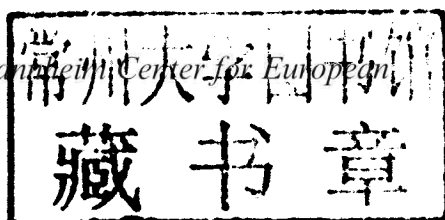 常州大学图书馆
annheim Center for European
藏书章